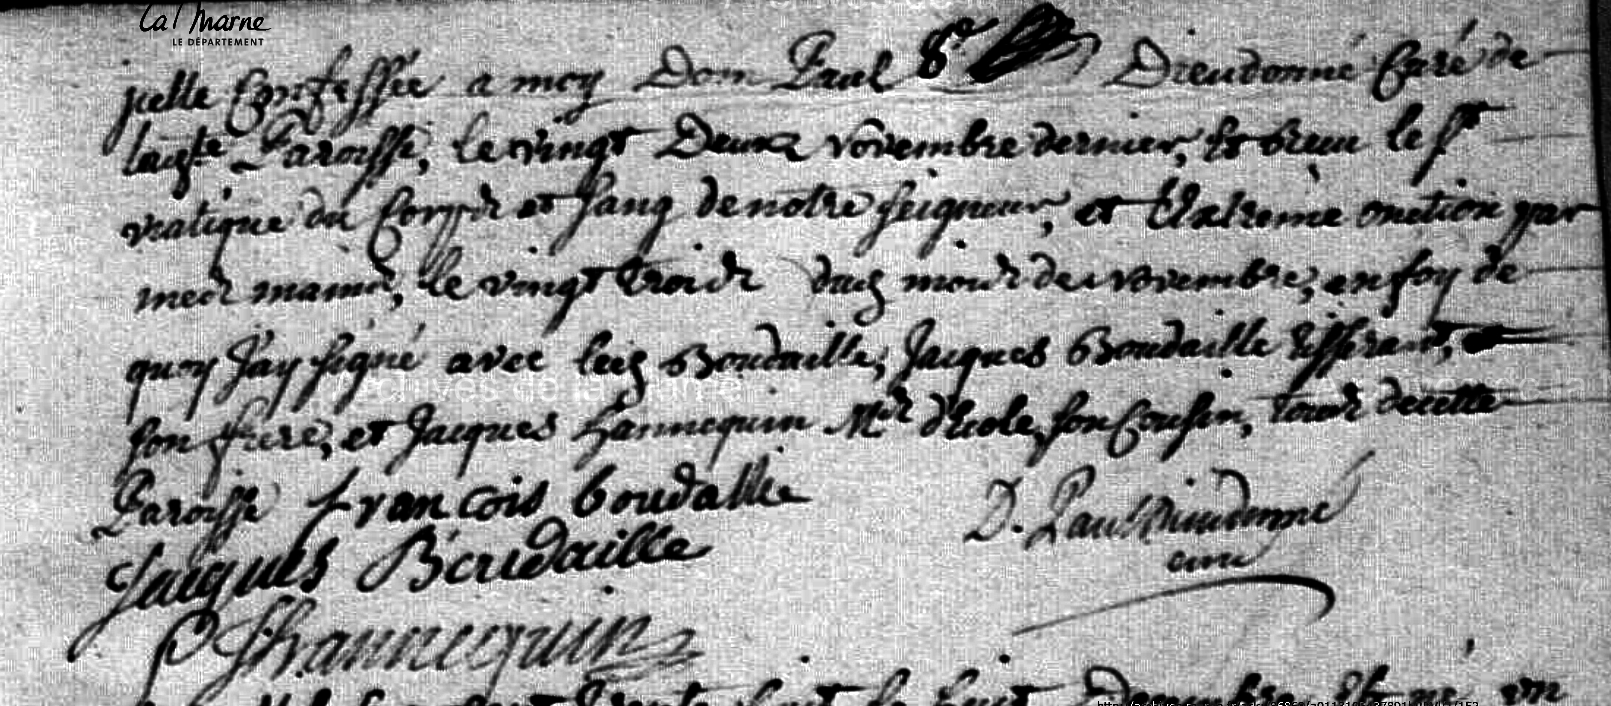 La Marne
LE DÉPARTEMENT
jcelle Confessée a moy Dom Paul Dieudonné Curé de
laditte Paroisse, le vingt Deux novembre dernier, et breu le st
viatique du Corps et sang de notre seigneur, et Extreme onction par
mes mains, le vingt trois dud mois de novembre, en foy de
quoy J'ay signé avec led Boudaille, Jacques Boudaille
son frere, et Jacques hannequin Mre d'Ecole, son Cousin, tous de cette
Paroisse françois boudallie
D. Paul Dieudonné
curé
Jacques Boudaille
J hannequin